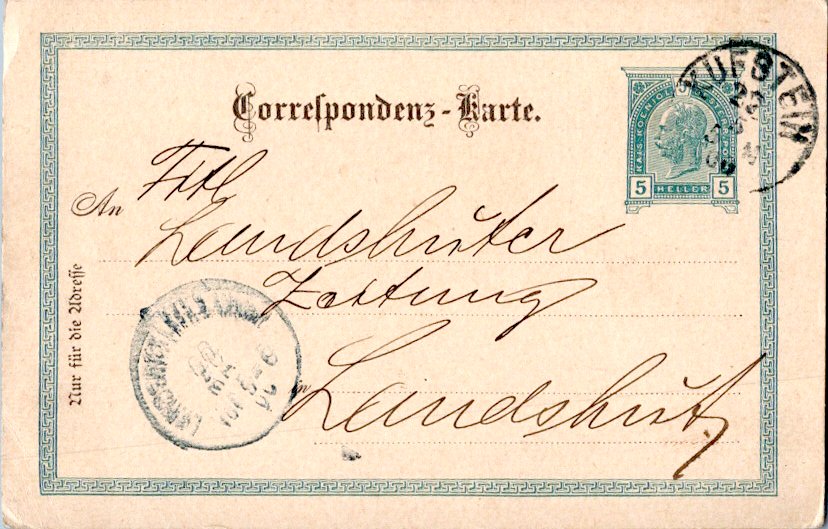 Correspondenz-Karte.
KAIS. KOENIGL.
5 HELLER 5
KUFSTEIN
An
Landshuter
Zeitung
in
Landshut
Nur für die Adresse